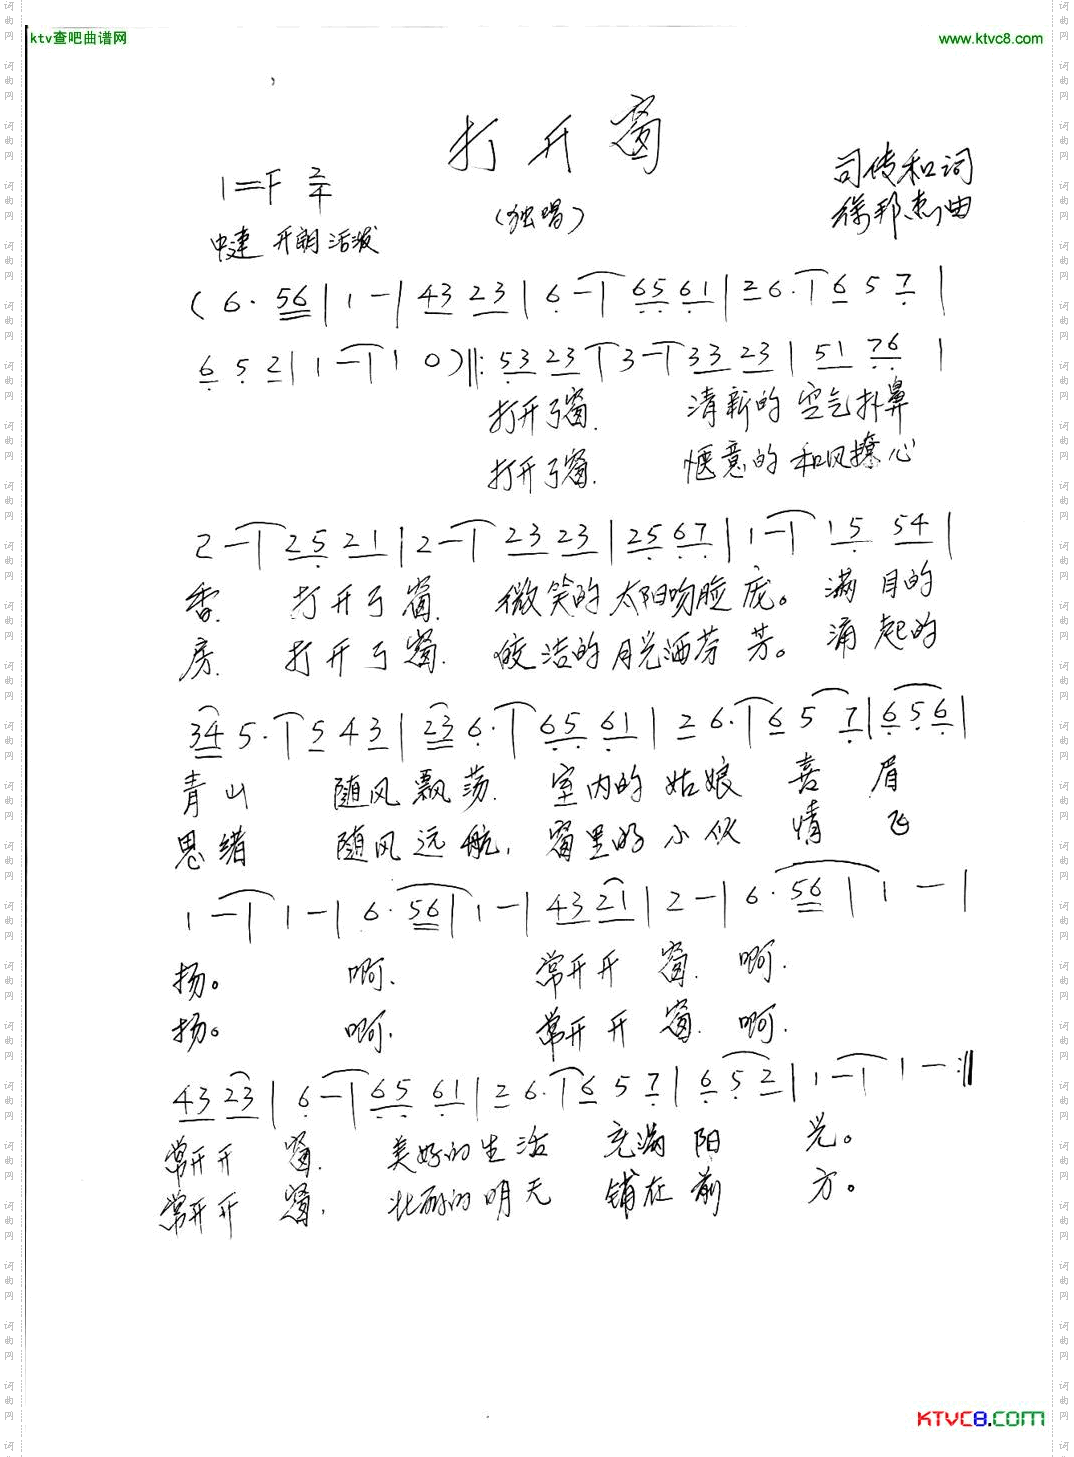 ktv查吧曲谱网
www.ktvc8.com
打开窗
1=F 2/4
司传和词
徐邦杰曲
(独唱)
中速 开朗活泼
(6· 56 | 1 - | 43 23 | 6 - | 65 61 | 26· | 6 5 7 |
6 5 2 | 1 - | 1 0) ‖: 53 23 | 3 - | 33 23 | 51 76 |
打开了窗. 清新的 空气扑鼻
打开了窗. 惬意的 和风撩心
2 - | 25 21 | 2 - | 23 23 | 25 67 | 1 - | 15 54 |
香. 打开了窗. 微笑的太阳吻脸庞。满目的
房. 打开了窗. 皎洁的月光洒芬芳。涌起的
34 5· | 5 4 3 | 23 6· | 65 61 | 26· | 6 5 7 | 6 5 6 |
青山 随风飘荡. 室内的姑娘 喜 眉
思绪 随风远航, 窗里的小伙 情 飞
1 - | 1 - | 6· 56 | 1 - | 43 21 | 2 - | 6· 56 | 1 - |
扬。 啊. 常开开窗. 啊.
扬。 啊. 常开开窗. 啊.
43 23 | 6 - | 65 61 | 26· | 6 5 7 | 6 5 2 | 1 - | 1 - :‖
常开开窗. 美好的生活 充满阳 光。
常开开窗, 壮丽的明天 铺在前 方。
KTVC8.COM
词曲网